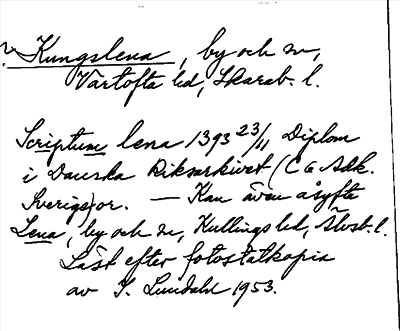 ? Kungslena, by och sn,
Vartofta hd, Skarab. l.
Scriptum lena 1393 23/11 Diplom
i Danska Riksarkivet (C G Adk.
Sverige) or. — Kan även åsyfta
Lena, by och sn, Kullings hd, Älvsb. l.
Läst efter fotostatkopia
av I. Lundahl 1953.